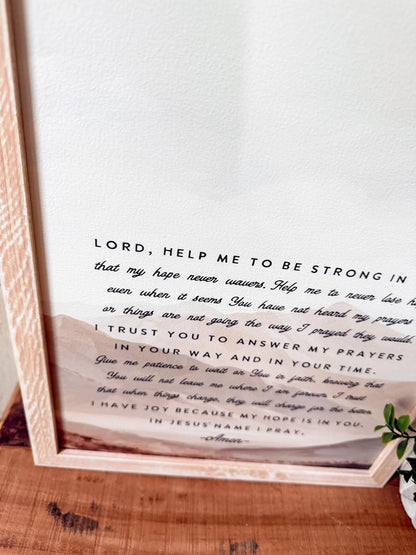 LORD, HELP ME TO BE STRONG IN
that my hope never wavers. Help me to never lose
even when it seems You have not heard my prayer
or things are not going the way I prayed they would.
I TRUST YOU TO ANSWER MY PRAYERS
IN YOUR WAY AND IN YOUR TIME.
Give me patience to wait on You in faith, knowing that
You will not leave me where I am forever. I trust
that when things change, they will change for the better.
I HAVE JOY BECAUSE MY HOPE IS IN YOU.
IN JESUS' NAME I PRAY,
-Amen-